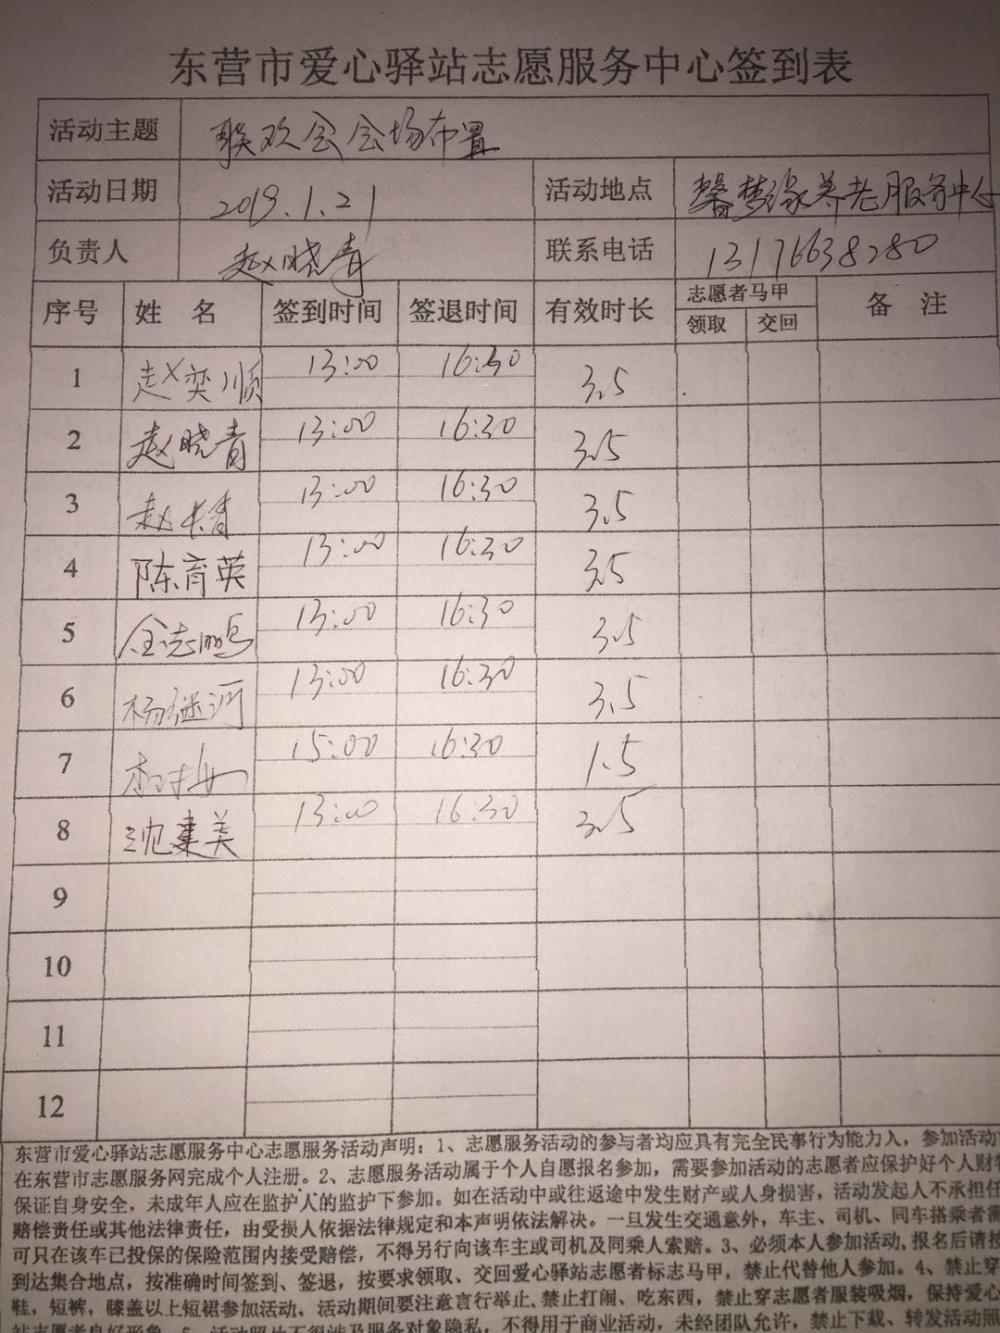 东营市爱心驿站志愿服务中心签到表
活动主题 联欢会会场布置
活动日期 2019.1.21 活动地点 馨梦缘养老服务中心
负责人 赵晓青 联系电话 13176638280
序号 姓名 签到时间 签退时间 有效时长 志愿者马甲 备注
领取 交回
1 赵奕顺 13:00 16:30 3.5
2 赵晓青 13:00 16:30 3.5
3 赵长青 13:00 16:30 3.5
4 陈育英 13:00 16:30 3.5
5 13:00 16:30 3.5
6 13:00 16:30 3.5
7 15:00 16:30 1.5
8 沈建美 13:00 16:30 3.5
9
10
11
12
东营市爱心驿站志愿服务中心志愿服务活动声明：1、志愿服务活动的参与者均应具有完全民事行为能力人，参加活动
在东营市志愿服务网完成个人注册。2、志愿服务活动属于个人自愿报名参加，需要参加活动的志愿者应保护好个人财
保证自身安全，未成年人应在监护人的监护下参加。如在活动中或往返途中发生财产或人身损害，活动发起人不承担任
赔偿责任或其他法律责任，由受损人依据法律规定和本声明依法解决。一旦发生交通意外，车主、司机、同车搭乘者需
可只在该车已投保的保险范围内接受赔偿，不得另行向该车主或司机及同乘人索赔。3、必须本人参加活动，报名后请按
到达集合地点，按准确时间签到、签退，按要求领取、交回爱心驿站志愿者标志马甲，禁止代替他人参加。4、禁止穿
鞋，短裤，膝盖以上短裙参加活动，活动期间要注意言行举止、禁止打闹、吃东西，禁止穿志愿者服装吸烟，保持爱心
站志愿者良好形象。5、活动照片不得涉及服务对象隐私，不得用于商业活动，未经团队允许，禁止下载、转发活动照